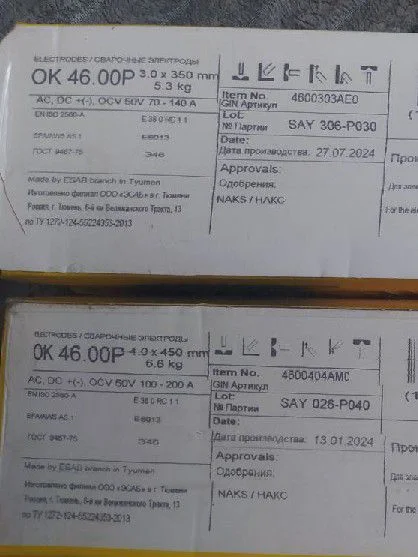 ELECTRODES / СВАРОЧНЫЕ ЭЛЕКТРОДЫ
OK 46.00P 3.0 x 350 mm
5.3 kg
AC, DC +(-), OCV 50V 70 - 140 A
EN ISO 2560-A E 38 0 RC 11
SFA/AWS A5.1 E6013
ГОСТ 9467-75 Э46
Made by ESAB branch in Tyumen
Изготовлено филиал ООО «ЭСАБ» в г. Тюмени
Россия, г. Тюмень, 6-й км Велижанского Тракта, 13
по ТУ 1272-124-55224353-2013
Item No.
GIN Артикул 4600303AE0
Lot:
№ Партии SAY 306-P030
Date:
Дата производства: 27.07.2024
Approvals:
Одобрения:
NAKS / НАКС
For the
ELECTRODES / СВАРОЧНЫЕ ЭЛЕКТРОДЫ
OK 46.00P 4.0 x 450 mm
6.6 kg
AC, DC +(-), OCV 50V 100 - 200 A
EN ISO 2560-A E 38 0 RC 11
SFA/AWS A5.1 E6013
ГОСТ 9467-75 Э46
Made by ESAB branch in Tyumen
Изготовлено филиал ООО «ЭСАБ» в г. Тюмени
Россия, г. Тюмень, 6-й км Велижанского Тракта, 13
по ТУ 1272-124-55224353-2013
Item No.
GIN Артикул 4600404AM0
Lot:
№ Партии SAY 026-P040
Date:
Дата производства: 13.01.2024
Approvals:
Одобрения:
NAKS / НАКС
For the